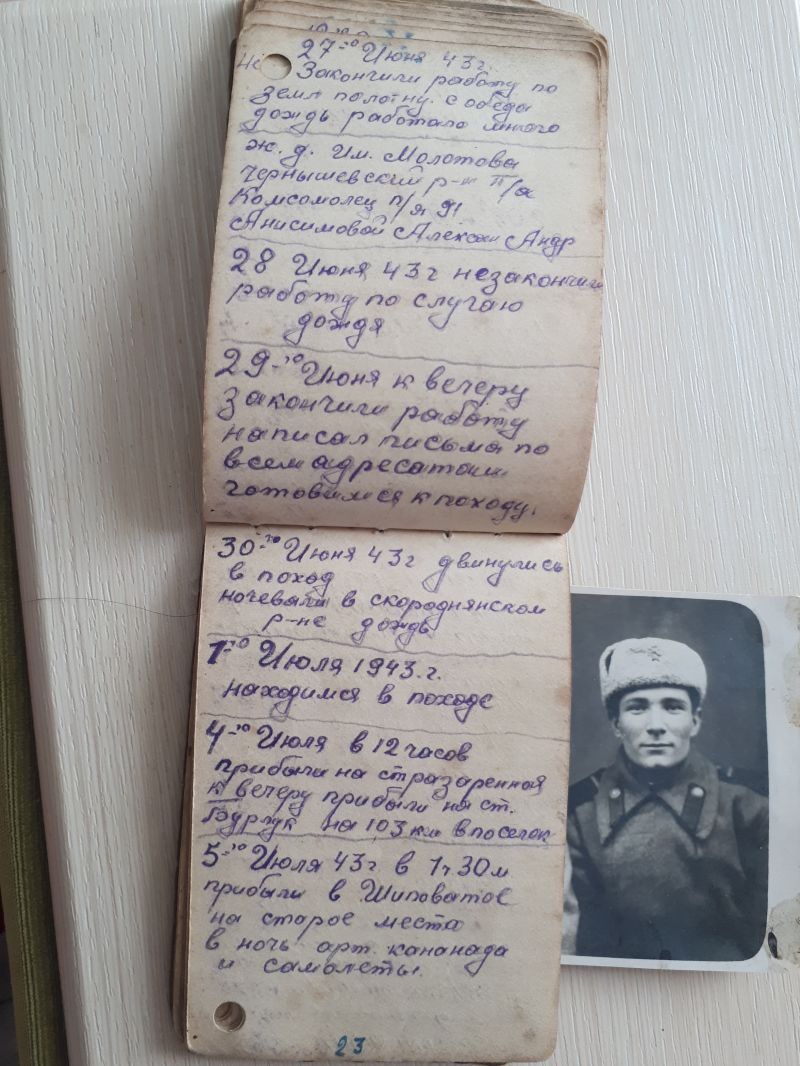 27-го Июня 43 г.
Закончили работу по
земл полотну. с обеда
дождь работало много
ж. д. Им. Молотова
Чернышевский р-н П/а
Комсомолец п/я 91
Анисимовой Алексан Андр
28 Июня 43 г незакончили
работу по случаю
дождя
29-го Июня к вечеру
Закончили работу
написал письма по
всем адресатам
готовимся к походу.
30-го Июня 43 г двинулись
в поход
ночевали в скороднянском
р-не дождь
1-го Июля 1943. г.
находимся в походе
4-го Июля в 12 часов
прибыли на
к вечеру прибыли на ст.
Бурлук на 103 км в поселок
5-го Июля 43 г в 1ч 30м
прибыли в Шиповатое
на старое места
в ночь арт. кананада
и самолеты.
23